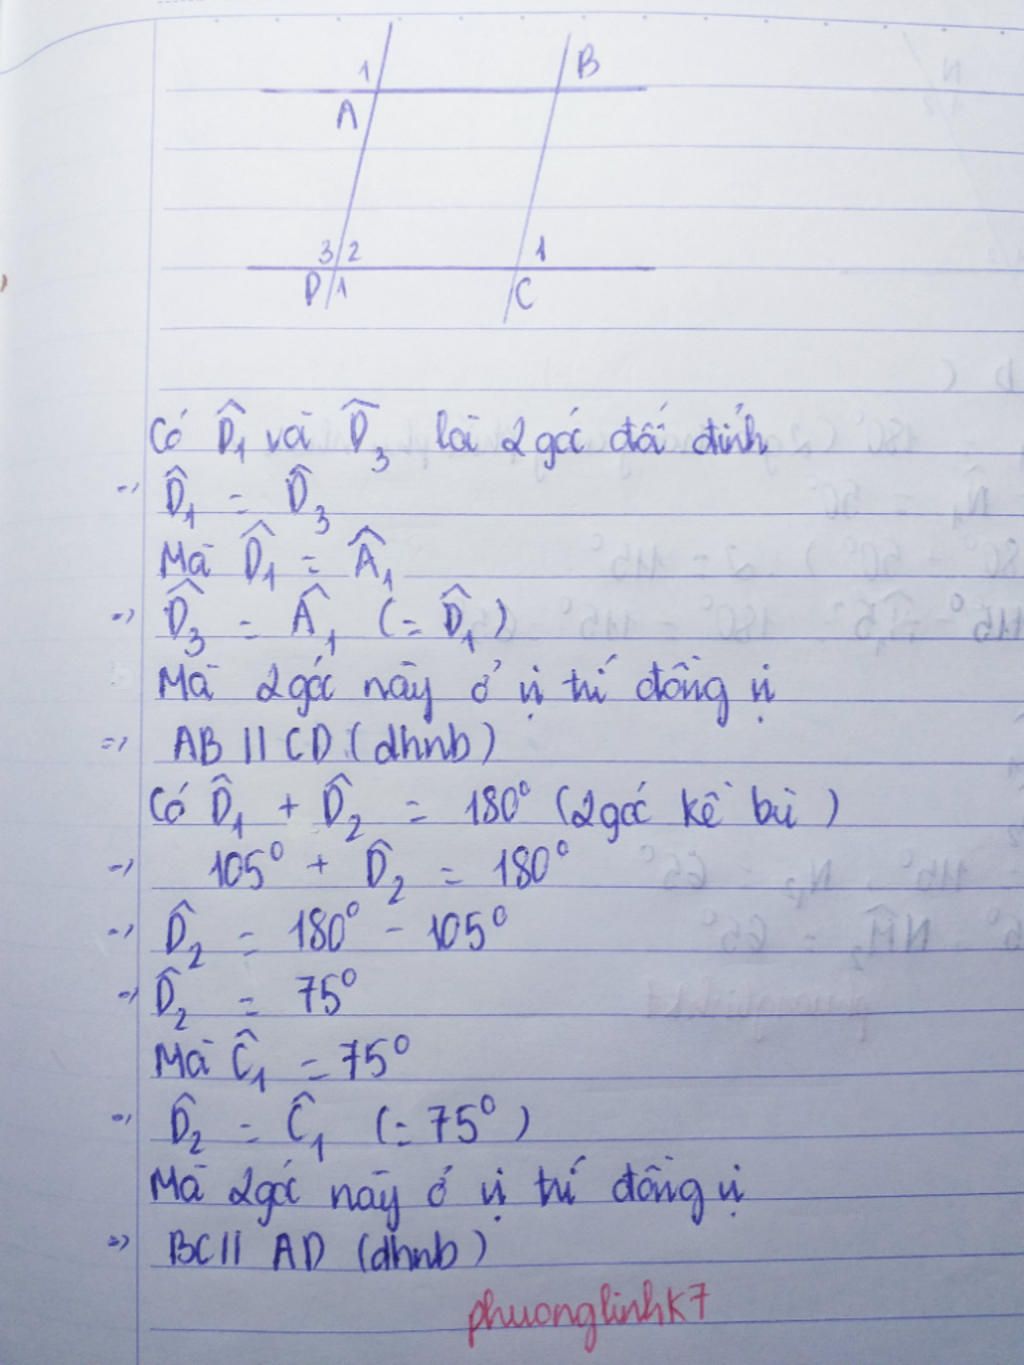 1
B
A
3 2
1
D 1
C
Có D̂₁ và D̂₃ là 2 góc đối đỉnh
=> D̂₁ = D̂₃
Mà D̂₁ = Â₁
=> D̂₃ = Â₁ (= D̂₁)
Mà 2 góc này ở vị trí đồng vị
=> AB // CD (dhnb)
Có D̂₁ + D̂₂ = 180° (2 góc kề bù)
=> 105° + D̂₂ = 180°
=> D̂₂ = 180° - 105°
=> D̂₂ = 75°
Mà Ĉ₁ = 75°
=> D̂₂ = Ĉ₁ (= 75°)
Mà 2 góc này ở vị trí đồng vị
=> BC // AD (dhnb)
phuonglinhk7